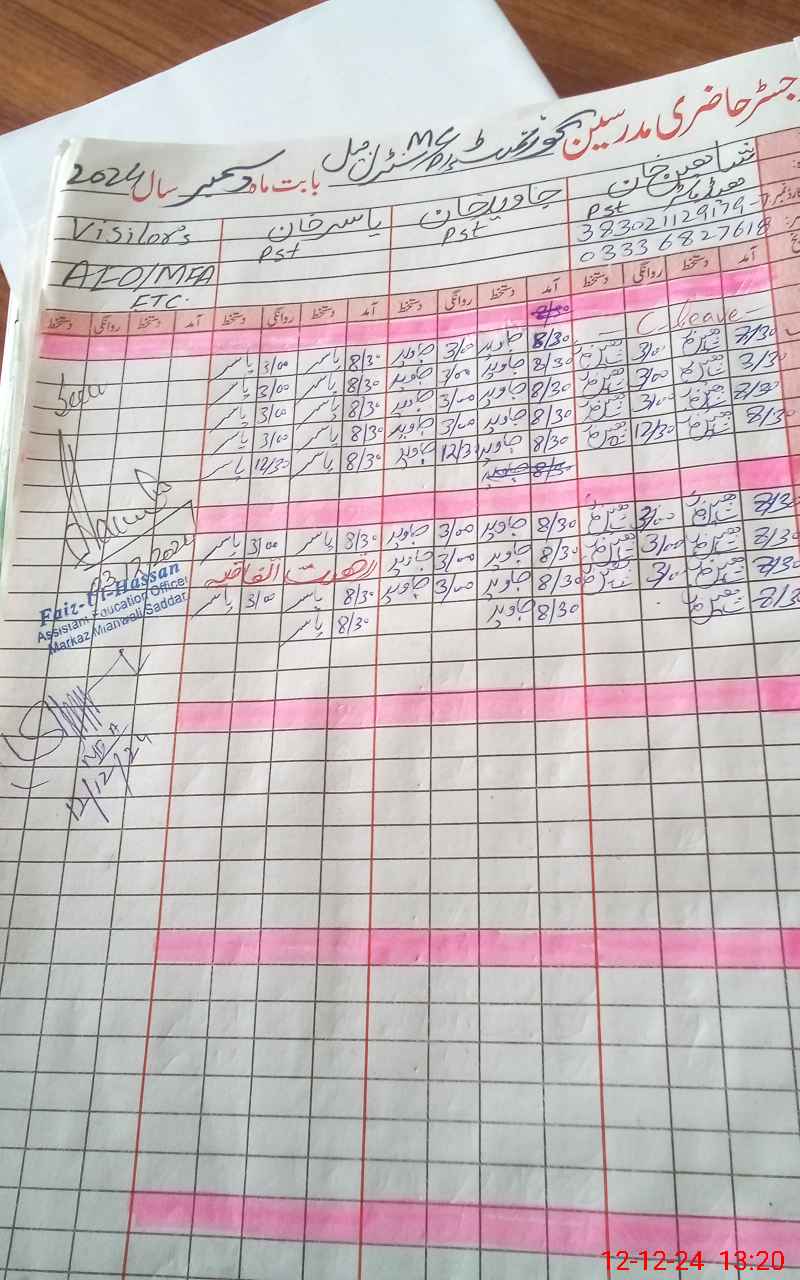 جسٹر حاضری مدرسین گورنمنٹ MC سنٹرل جیل بابت ماہ دسمبر سال 2024
شاھین خان جاوید خان یاسر خان Visitor's
ھیڈ ماسٹر
Pst Pst Pst
383021129179-7
03336827618 AEO/MEA
ETC.
آمد دستخط روانگی دستخط آمد دستخط روانگی دستخط آمد دستخط روانگی دستخط آمد دستخط روانگی دستخط
8/30
C-leave 8/30 جاوید 3/00 جاوید 8/30 یاسر 3/00 یاسر
8/30 3/00 8/30 جاوید 3/00 جاوید 8/30 یاسر 3/00 یاسر
8/30 3/00 8/30 جاوید 3/00 جاوید 8/30 یاسر 3/00 یاسر
8/30 3/00 8/30 جاوید 3/00 جاوید 8/30 یاسر 3/00 یاسر
8/30 12/30 8/30 جاوید 12/30 جاوید 8/30 یاسر 12/30 یاسر
8/30 جاوید
8/30 3/00 8/30 جاوید 3/00 جاوید 8/30 یاسر 3/00 یاسر
8/30 3/00 8/30 جاوید 3/00 جاوید رخصت اتفاقیہ
8/30 3/00 8/30 جاوید 3/00 جاوید 8/30 یاسر 3/00 یاسر
8/30 8/30 جاوید 8/30 یاسر
Seen
03.12.2024
Faiz-Ul-Hassan
Assistant Education Officer
Markaz Mianwali Saddar
MEA
12/12/24
12-12-24 13:20